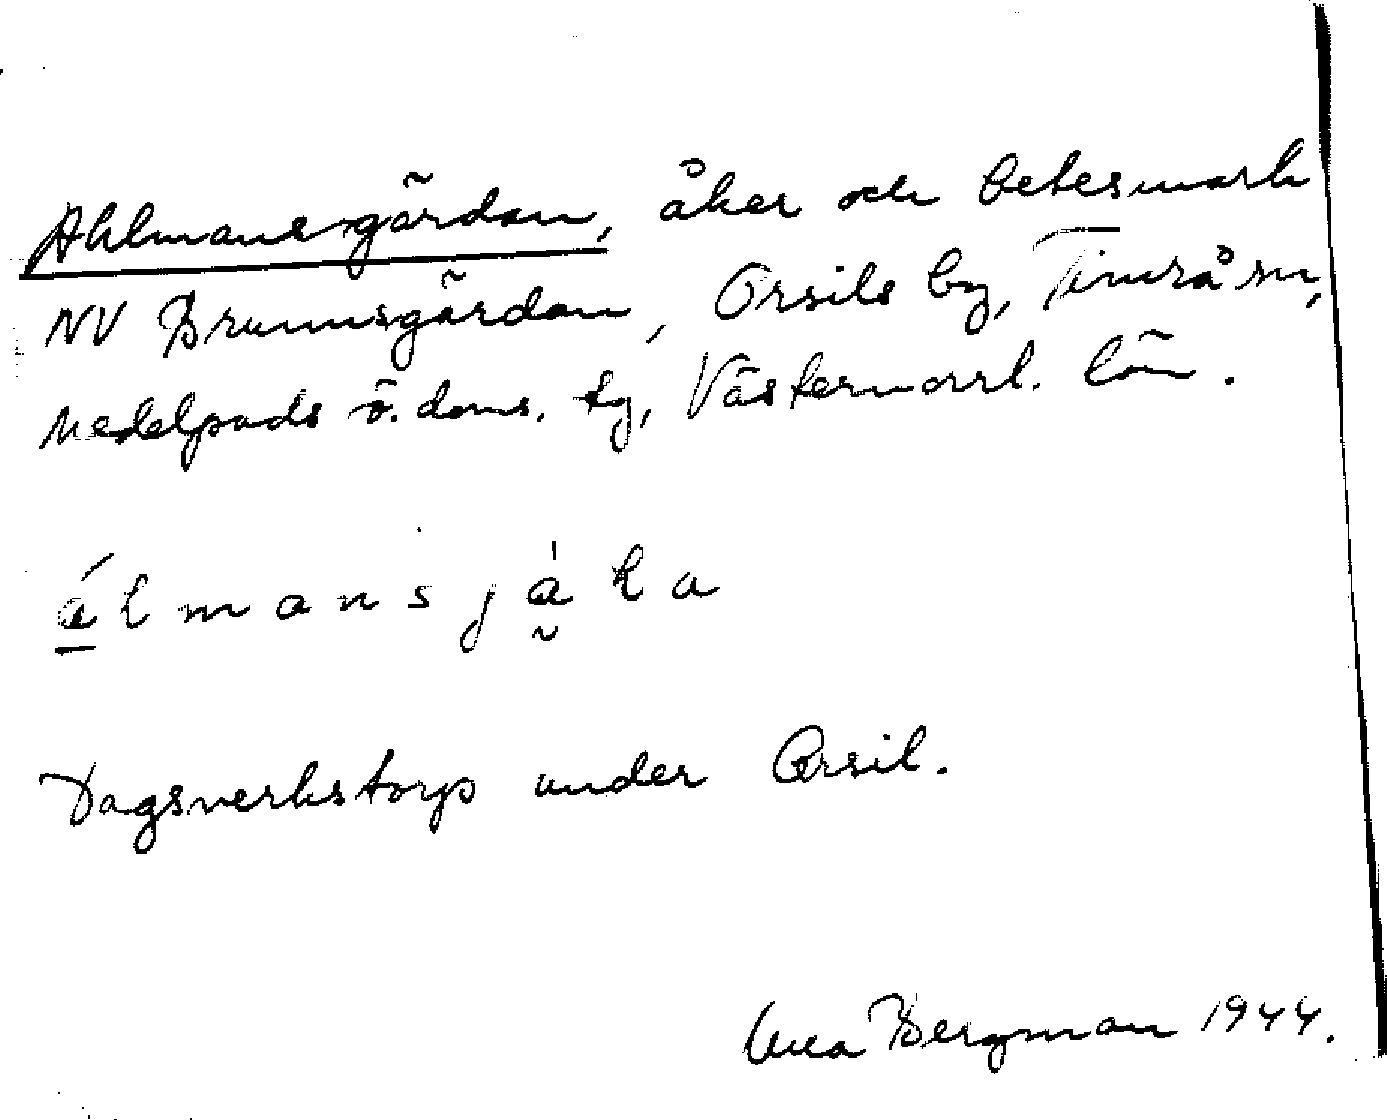 Ahlmansgärdan, åker och betesmark
NV Brunnsgärdan, Orsils by, Timrå sn,
Medelpads ö. doms. tg, Västernorrl. län.
álmansjàḷa
Dagsverkstorp under Orsil.
Bergman 1944.